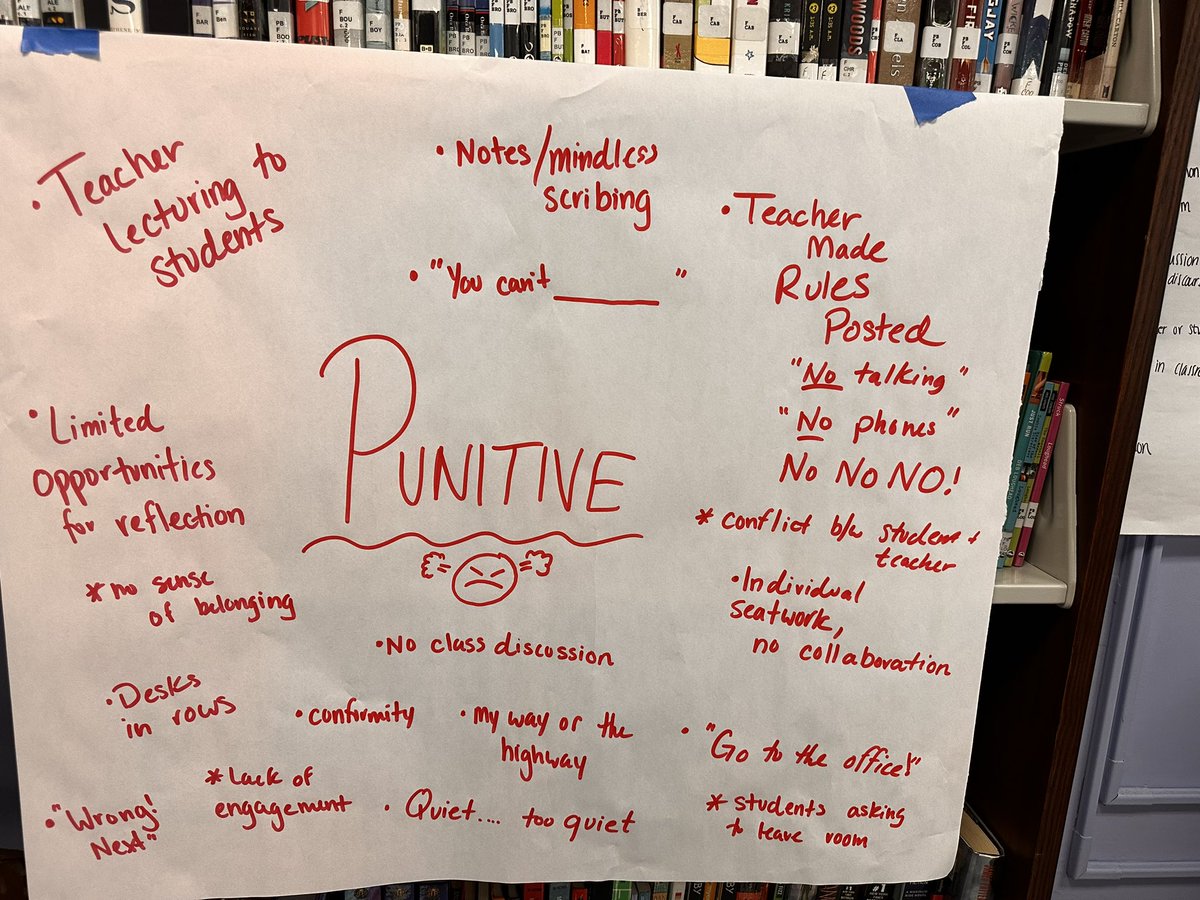 • Teacher
lecturing to
students
• Notes/mindless
scribing
• "You can't ______ "
• Teacher
Made
Rules
Posted
"No talking"
"No phones"
No No NO!
* conflict b/w student +
teacher
• Individual
seatwork,
no collaboration
PUNITIVE
• Limited
opportunities
for reflection
* no sense
of belonging
• No class discussion
• Desks
in rows
• conformity
• My way or the
highway
• "Go to the office!"
* Lack of
engagement
• Quiet.... too quiet
* students asking
to leave room
• "Wrong!
Next"